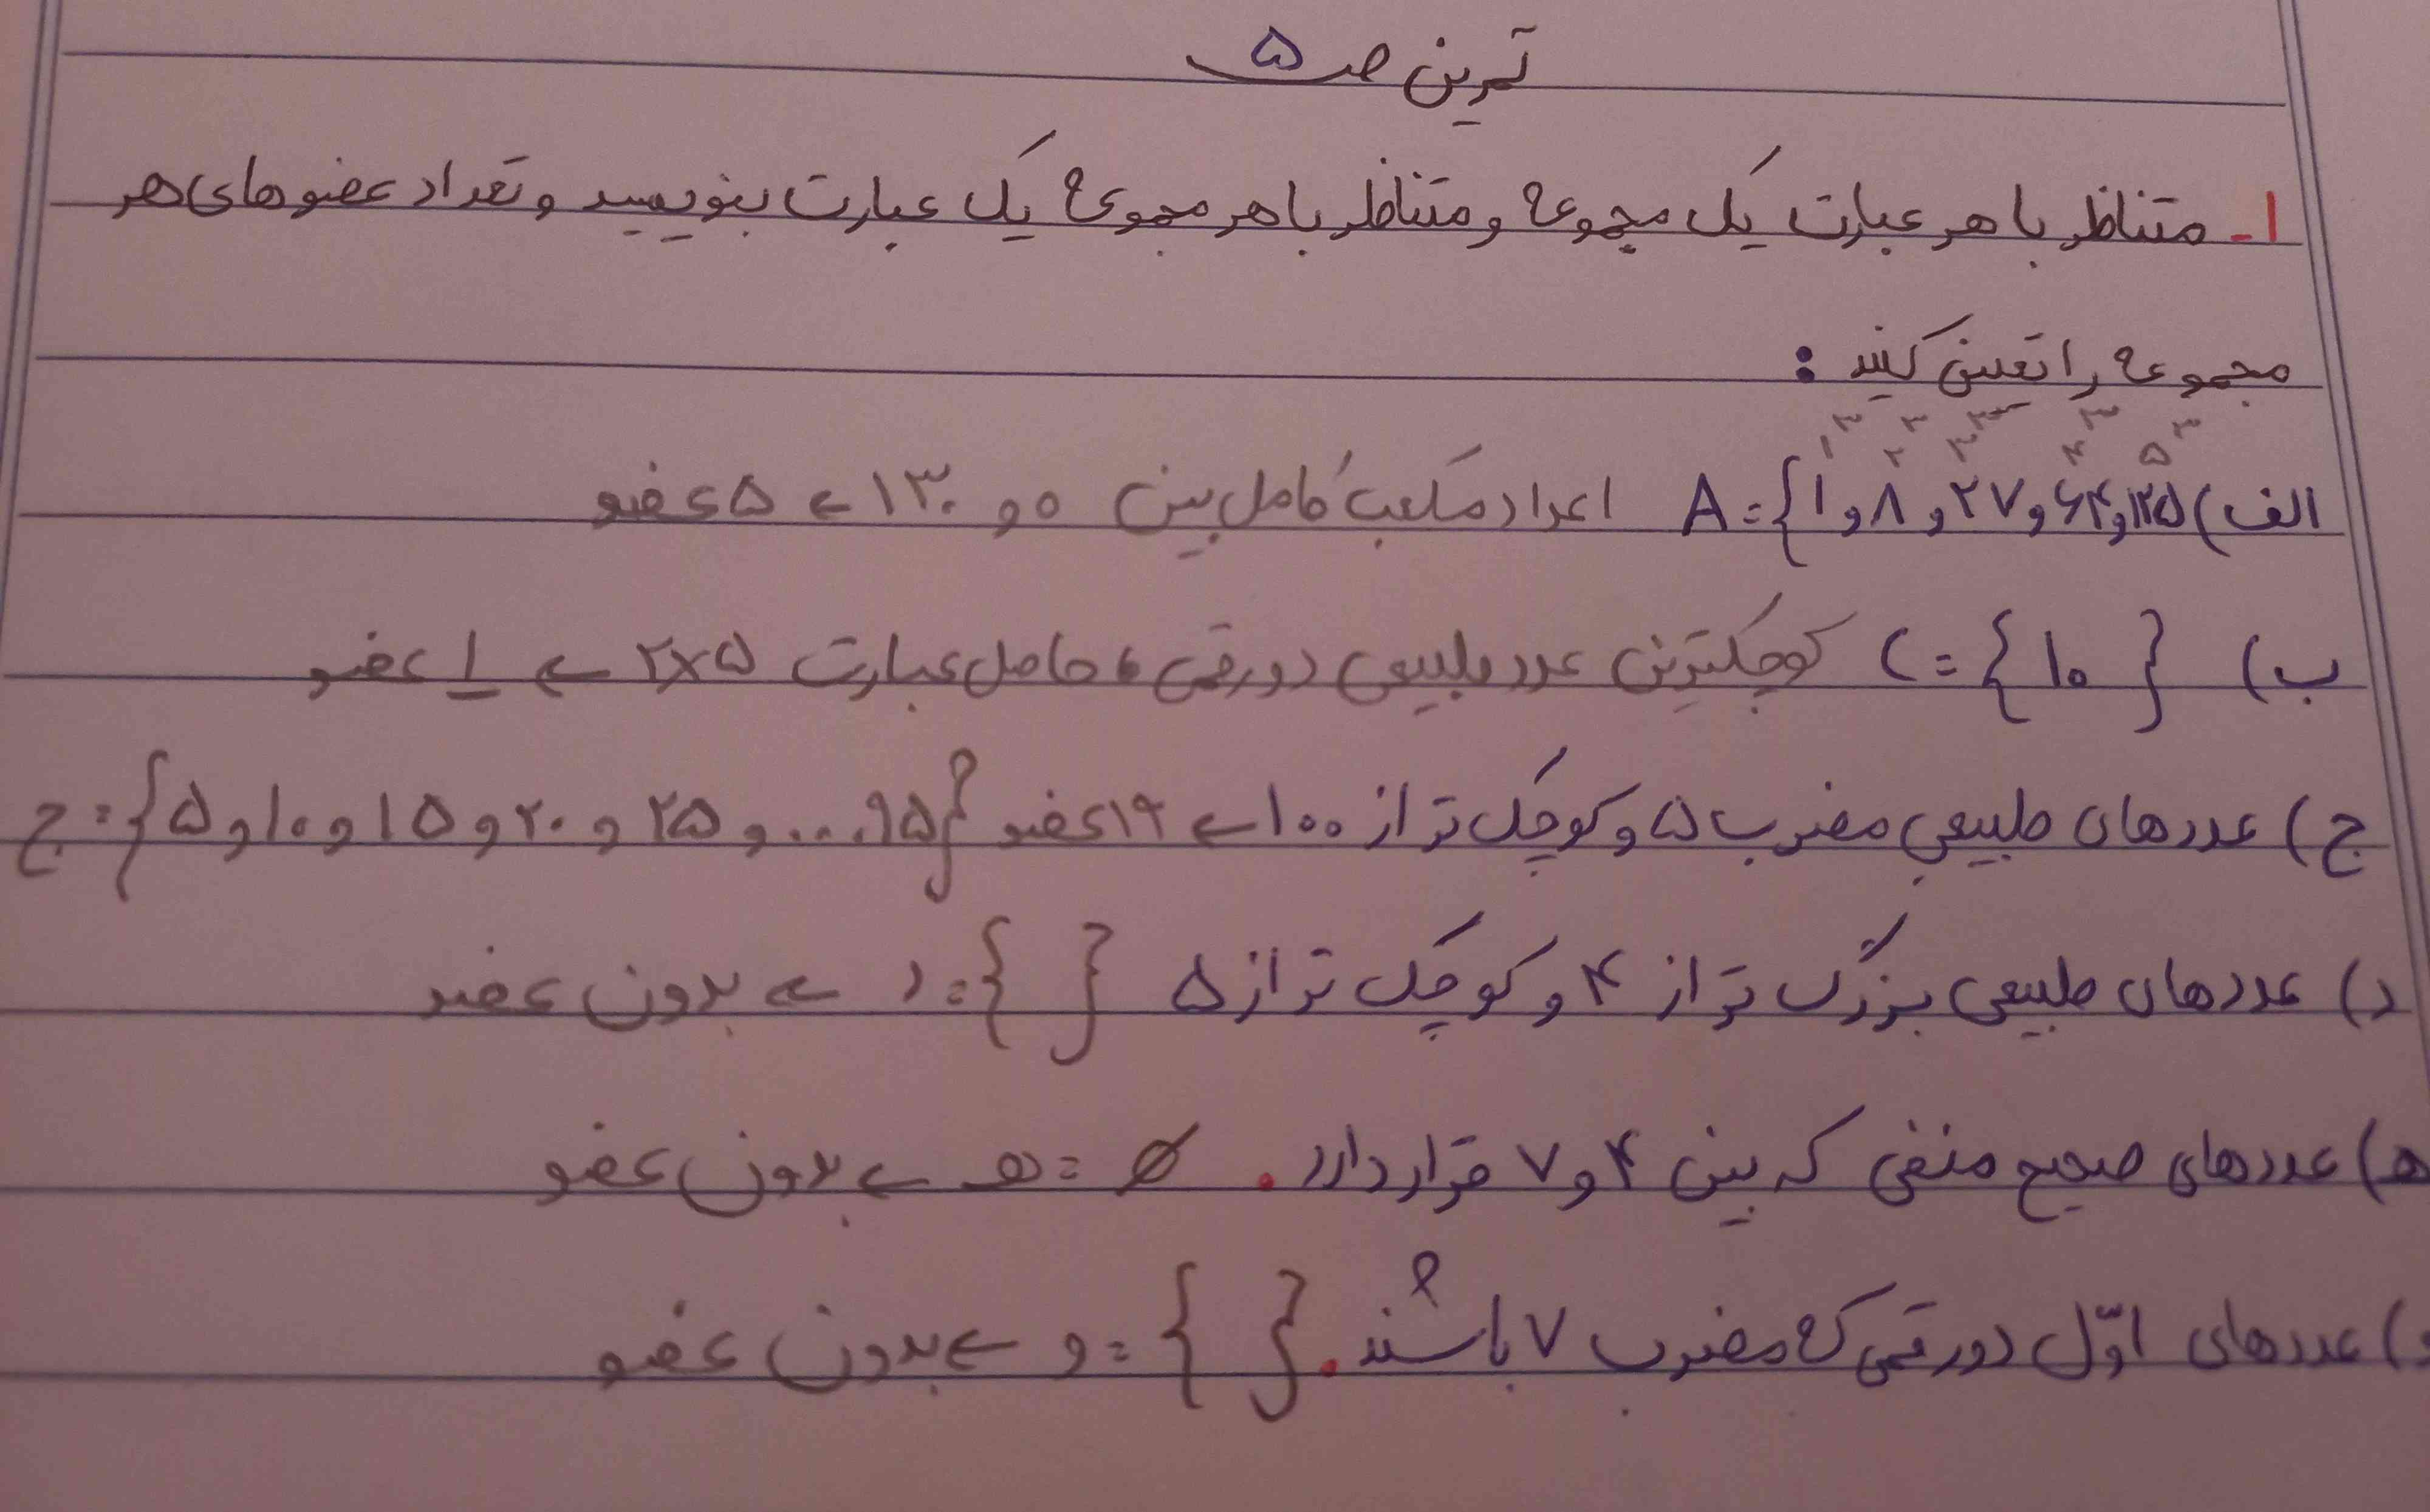 تمرین صـ ۵
۱ـ متناظر با هر عبارت یک مجموعه و متناظر با هر مجموعه یک عبارت بنویسید و تعداد عضوهای هر
مجموعه را تعیین کنید :
۱³ ۲³ ۳³ ۴³ ۵³
الف) A = {۱ و ۸ و ۲۷ و ۶۴ و ۱۲۵ اعداد مکعب کامل بین ۰ و ۱۳۰ ← ۵ عضو
ب) C = {۱۰} کوچکترین عدد طبیعی دو رقمی، حاصل عبارت ۲×۵ ← ۱ عضو
ج) عددهای طبیعی مضرب ۵ و کوچک تر از ۱۰۰ ← ۱۹ عضو {۵ و ۱۰ و ۱۵ و ۲۰ و ۲۵ و ... ۹۵} = ج
د) عددهای طبیعی بزرگ تر از ۴ و کوچک تر از ۵ { } = د ← بدون عضو
ه) عددهای صحیح منفی که بین ۴ و ۷ قرار دارد. ∅ = هـ ← بدون عضو
و) عددهای اوّل دو رقمی که مضرب ۷ باشند. { } = و ← بدون عضو